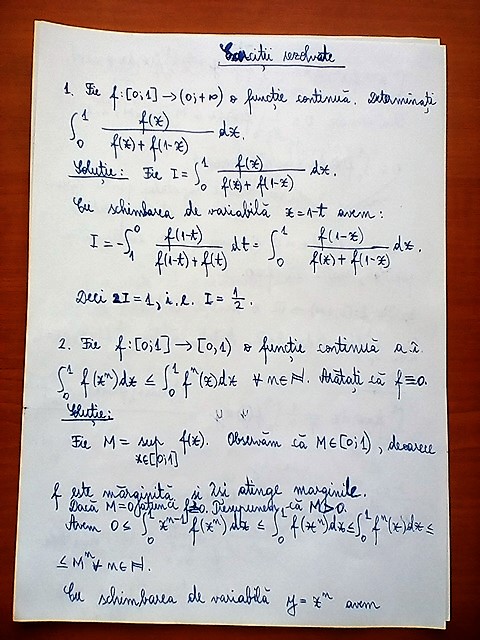 Exerciții rezolvate
1. Fie f:[0;1]→(0;+∞) o funcție continuă. Determinați
∫₀¹ f(x)/(f(x)+f(1-x)) dx.
Soluție: Fie I=∫₀¹ f(x)/(f(x)+f(1-x)) dx.
Cu schimbarea de variabilă x=1-t avem:
I=-∫₁⁰ f(1-t)/(f(1-t)+f(t)) dt = ∫₀¹ f(1-x)/(f(x)+f(1-x)) dx.
Deci 2I=1, i.e. I=1/2.
2. Fie f:[0;1]→[0,1) o funcție continuă a.î.
∫₀¹ f(xⁿ)dx ≤ ∫₀¹ fⁿ(x)dx ∀ n∈ℕ. Arătați că f≡0.
Soluție:
Fie M = sup f(x). Observăm că M∈[0;1), deoarece
x∈[0;1]
f este mărginită și își atinge marginile.
Dacă M=0 atunci f≡0. Presupunem că M>0.
Avem 0≤∫₀¹ xⁿ⁻¹ f(xⁿ)dx ≤ ∫₀¹ f(xⁿ)dx ≤ ∫₀¹ fⁿ(x)dx ≤
≤ Mⁿ ∀ n∈ℕ.
Cu schimbarea de variabilă y=xⁿ avem